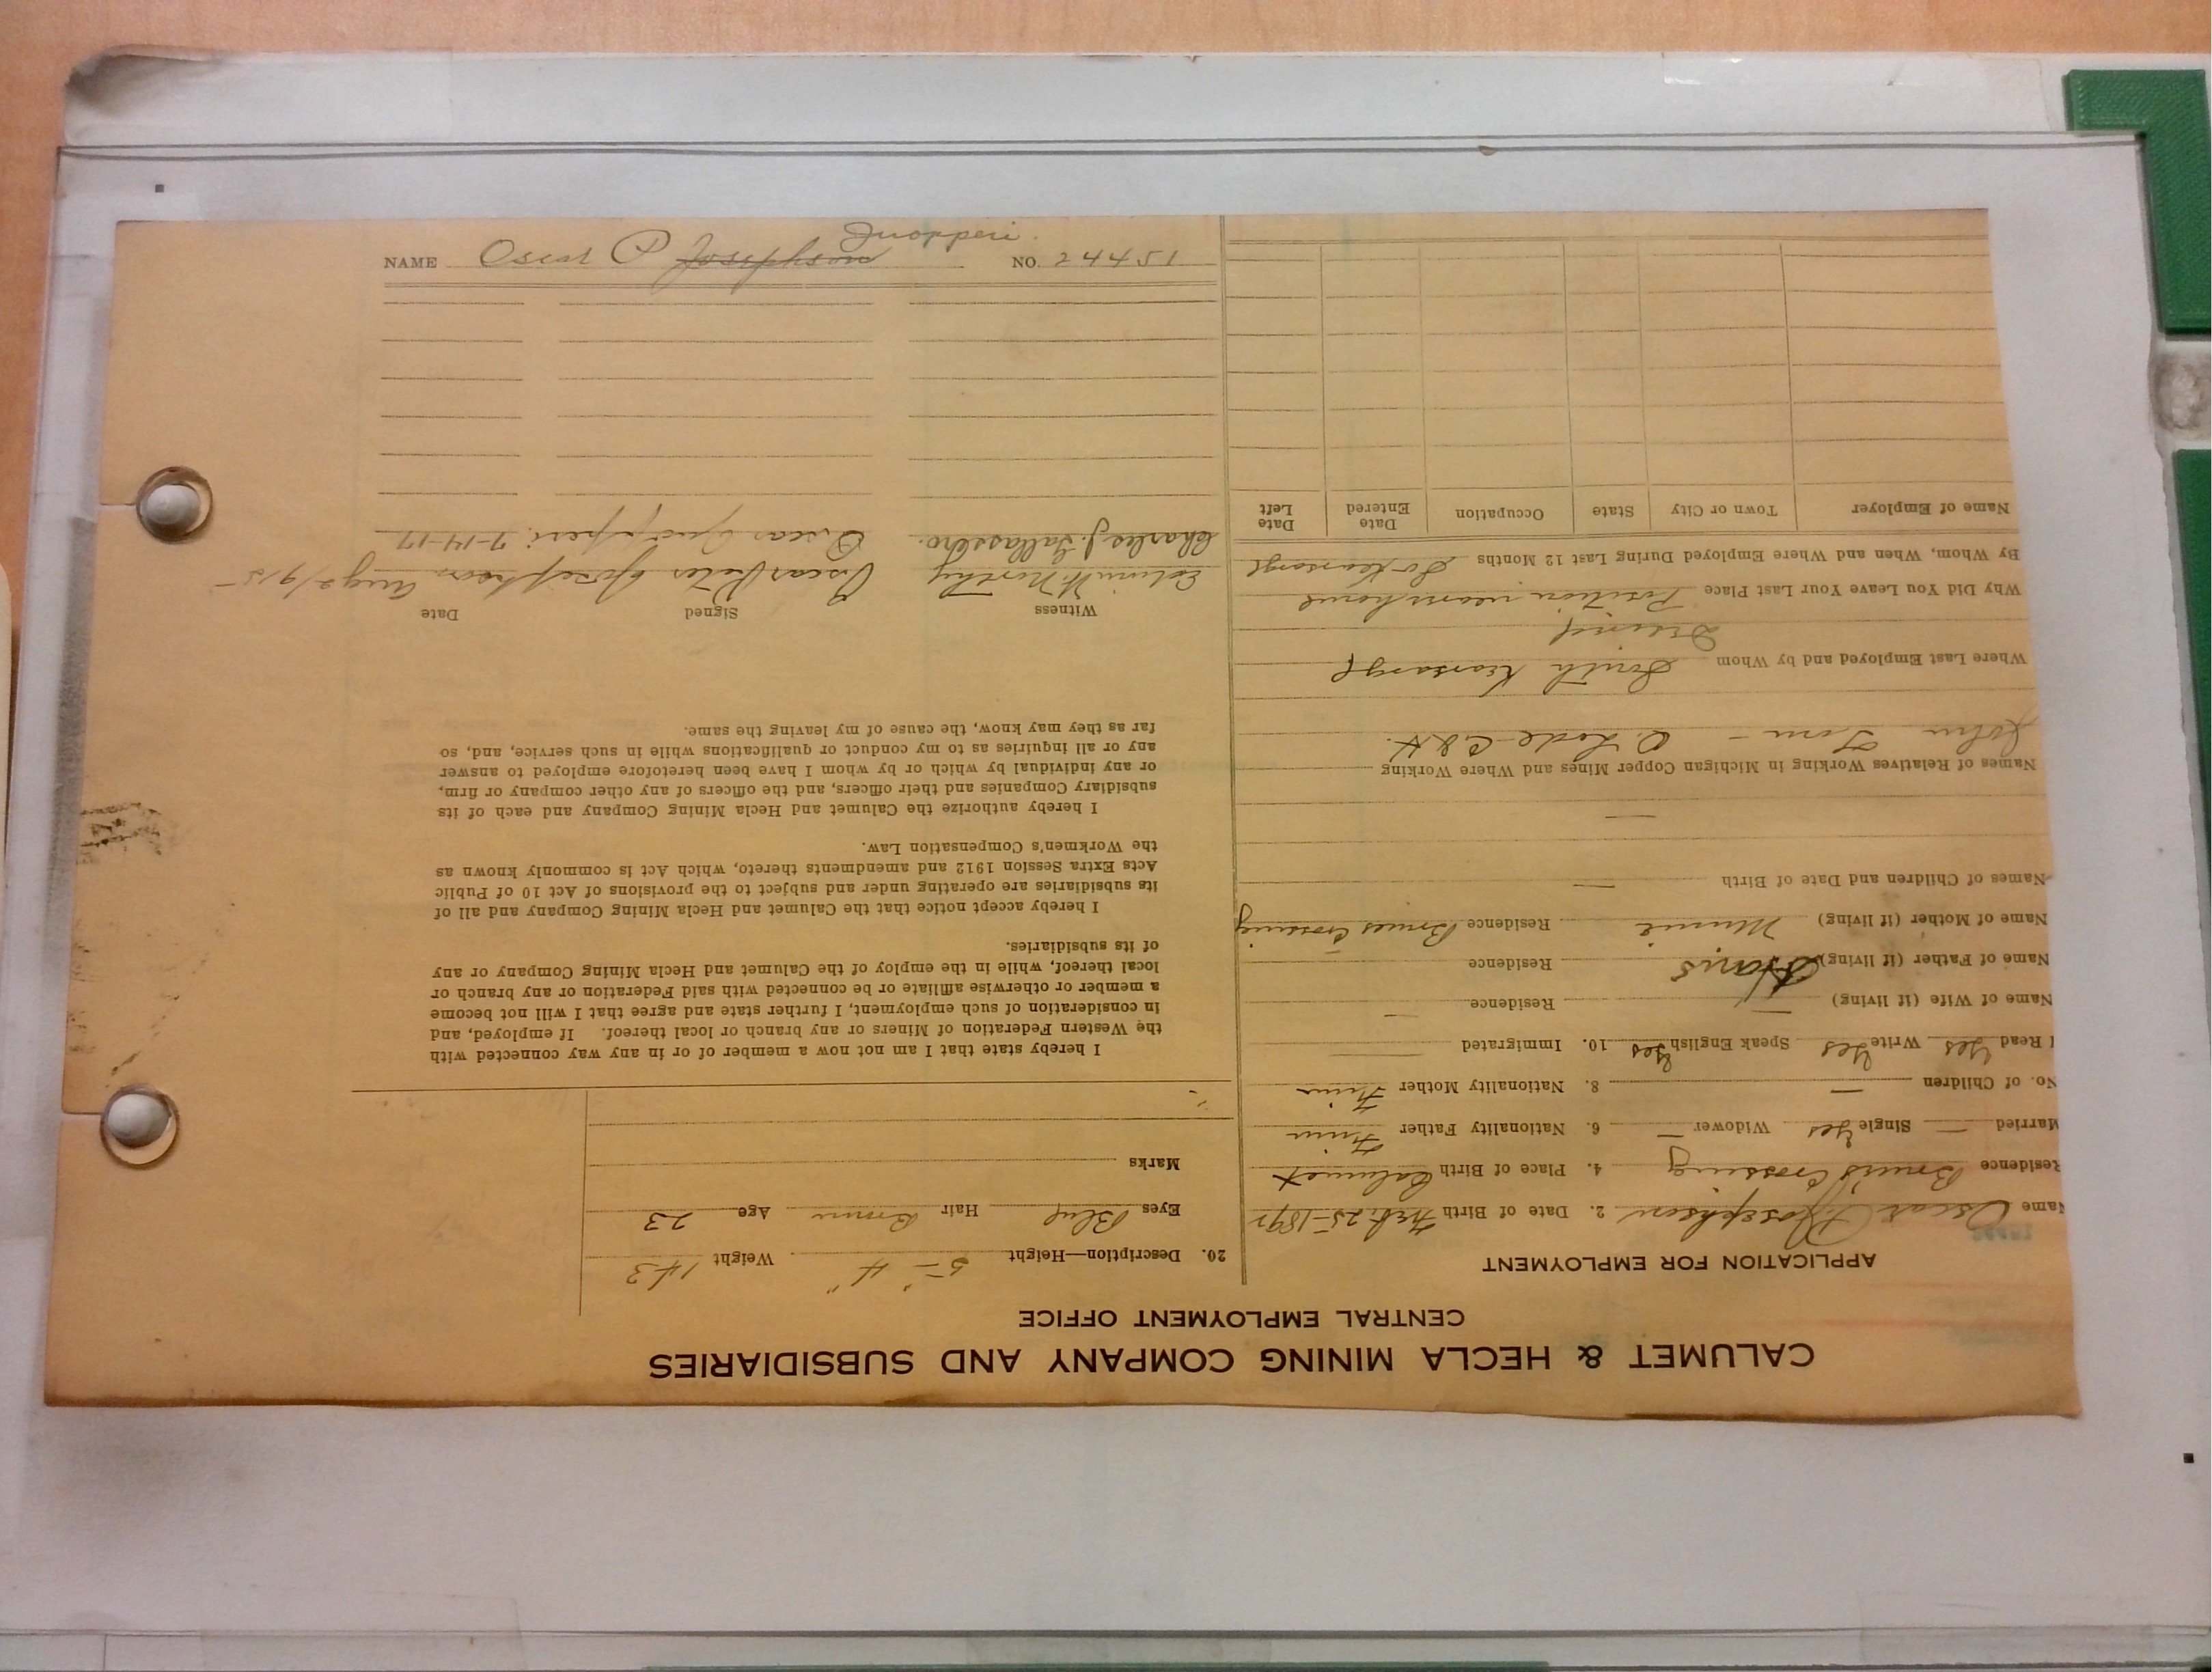 CALUMET & HECLA MINING COMPANY AND SUBSIDIARIES
CENTRAL EMPLOYMENT OFFICE
APPLICATION FOR EMPLOYMENT
Name Oscar P Josephson 2. Date of Birth Feb. 25-1892
Residence Bruce's Crossing 4. Place of Birth Calumet
Married — Single Yes Widower — 6. Nationality Father Finn
No. of Children — 8. Nationality Mother Finn
Read Yes Write Yes Speak English Yes 10. Immigrated
Name of Wife (if living) — Residence —
Name of Father (if living) Residence
Name of Mother (if living) Minnie Residence Bruces Crossing
Names of Children and Date of Birth —
—
Names of Relatives Working in Michigan Copper Mines and Where Working
John - O. Lode - C. & H.
Where Last Employed and by Whom South Kearsarge
Why Did You Leave Your Last Place Position near home
By Whom, When and Where Employed During Last 12 Months So Kearsarge
Name of Employer Town or City State Occupation Date Entered Date Left
20. Description—Height 5'-4" Weight 143
Eyes Blue Hair Brown Age 23
Marks
I hereby state that I am not now a member of or in any way connected with
the Western Federation of Miners or any branch or local thereof. If employed, and
in consideration of such employment, I further state and agree that I will not become
a member or otherwise affiliate or be connected with said Federation or any branch or
local thereof, while in the employ of the Calumet and Hecla Mining Company or any
of its subsidiaries.
I hereby accept notice that the Calumet and Hecla Mining Company and all of
its subsidiaries are operating under and subject to the provisions of Act 10 of Public
Acts Extra Session 1912 and amendments thereto, which Act is commonly known as
the Workmen's Compensation Law.
I hereby authorize the Calumet and Hecla Mining Company and each of its
subsidiary Companies and their officers, and the officers of any other company or firm,
or any individual by which or by whom I have been heretofore employed to answer
any or all inquiries as to my conduct or qualifications while in such service, and, so
far as they may know, the cause of my leaving the same.
Witness Signed Date
Edwin W. Oscar Peter Josephson Aug 2/915
Charles J. Oscar 7-14-17
Juopperi
NAME Oscar P Josephson NO. 24451